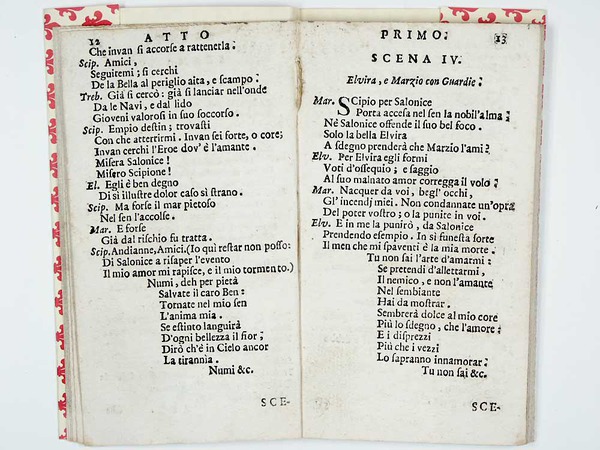 12 ATTO
Che invan ſi accorſe a rattenerla.
Scip. Amici,
Seguitemi; ſi cerchi
De la Bella al periglio aita, e ſcampo.
Treb. Già ſi cercò: già ſi lanciar nell'onde
Da le Navi, e dal lido
Gioveni valoroſi in ſuo ſoccorſo.
Scip. Empio deſtin; trovaſti
Con che atterrirmi. Invan ſei forte, o core;
Invan cerchi l'Eroe dov' è l'amante.
Miſera Salonice!
Miſero Scipione!
El. Egli è ben degno
Di sì illuſtre dolor caſo sì ſtrano.
Scip. Ma forſe il mar pietoſo
Nel ſen l'accolſe.
Mar. E forſe
Già dal riſchio fu tratta.
Scip. Andianne, Amici, (Io quì reſtar non poſſo:
Di Salonice a riſaper l'evento
Il mio amor mi rapiſce, e il mio tormento.)
Numi, deh per pietà
Salvate il caro Ben:
Tornate nel mio ſen
L'anima mia.
Se eſtinto languirà
D'ogni bellezza il fior;
Dirò ch'è in Cielo ancor
La tirannia.
Numi &c.
SCE-
PRIMO. 13
SCENA IV.
Elvira, e Marzio con Guardie.
Mar. SCipio per Salonice
Porta acceſa nel ſen la nobil'alma;
Nè Salonice offende il ſuo bel foco.
Solo la bella Elvira
A ſdegno prenderà che Marzio l'ami?
Elv. Per Elvira egli formi
Voti d'oſſequio; e ſaggio
Al ſuo malnato amor corregga il volo.
Mar. Nacquer da voi, begl' occhi,
Gl' incendj miei. Non condannate un'opra
Del poter voſtro; o la punite in voi.
Elv. E in me la punirò, da Salonice
Prendendo eſempio. In sì funeſta ſorte
Il men che mi ſpaventi è la mia morte.
Tu non ſai l'arte d'amarmi:
Se pretendi d'allettarmi,
Il nemico, e non l'amante
Nel ſembiante
Hai da moſtrar.
Sembrerà dolce al mio core
Più lo ſdegno, che l'amore:
E i diſprezzi
Più che i vezzi
Lo ſapranno innamorar.
Tu non ſai &c.
SCE-